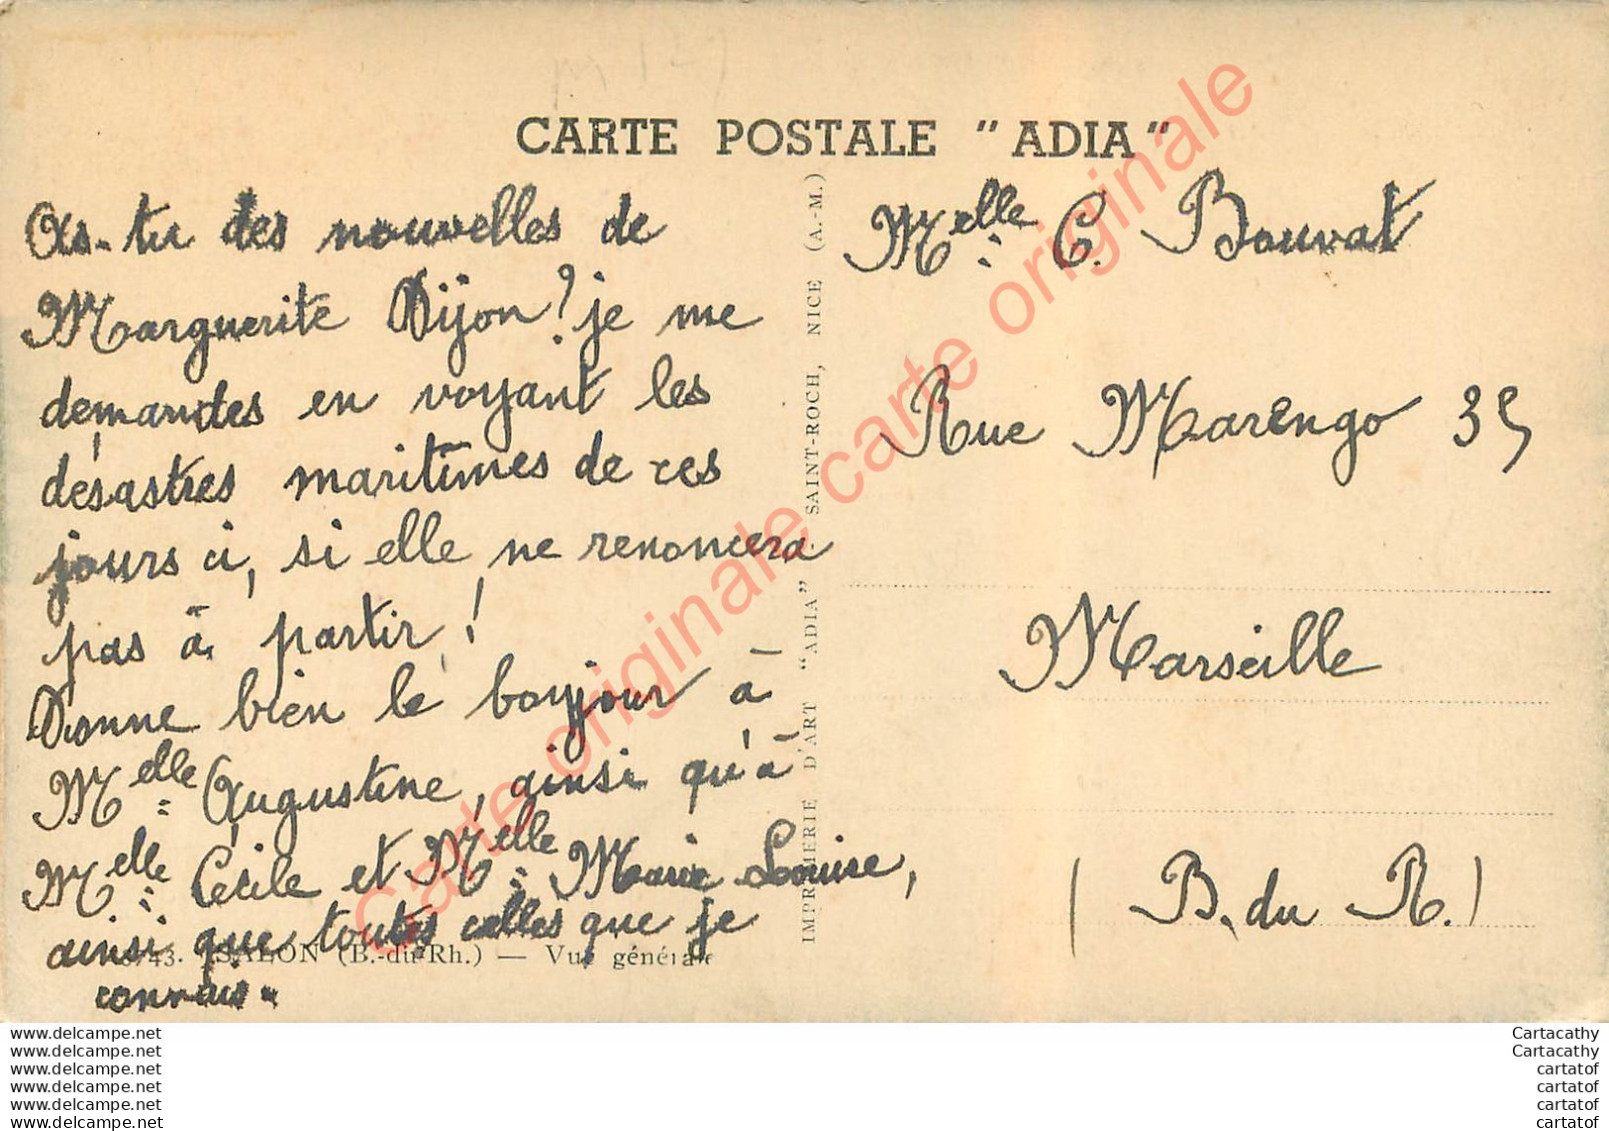 CARTE POSTALE "ADIA"
As-tu des nouvelles de
Marguerite Dijon? je me
demandes en voyant les
désastres maritimes de ces
jours ci, si elle ne renoncera
pas à partir!
Donne bien le bonjour à
Melle Augustine, ainsi qu'à
Melle Cécile et Melle Marie Louise,
ainsi que toutes celles que je
connais
43. SALON (B.-du-Rh.) — Vue générale
IMPRIMERIE D'ART "ADIA" SAINT-ROCH, NICE (A.-M.)
Melle C. Bouvat
Rue Marengo 35
Marseille
(B. du R.)
Carte originale carte originale
www.delcampe.net
www.delcampe.net
www.delcampe.net
www.delcampe.net
www.delcampe.net
www.delcampe.net
Cartacathy
Cartacathy
cartatof
cartatof
cartatof
cartatof